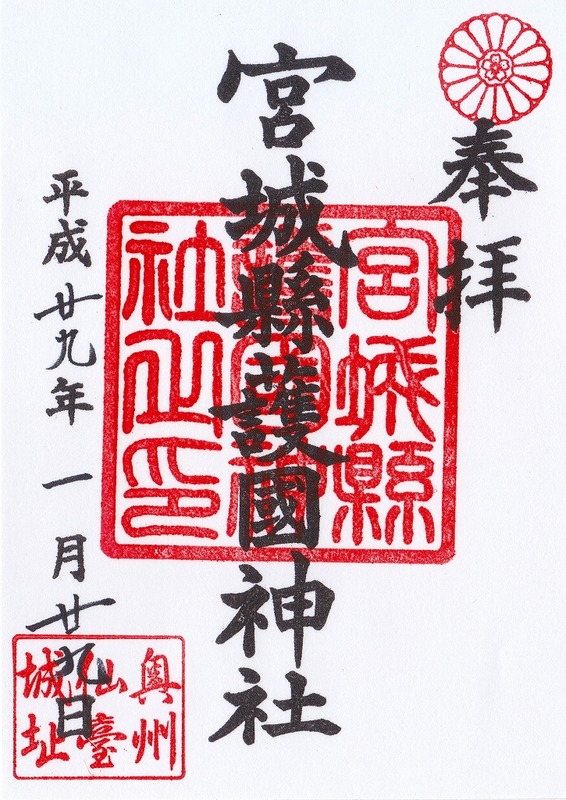 奉拝
宮城縣護國神社
宮城縣
護國神
社之印
平成廿九年一月廿九日
奥州
仙臺
城址